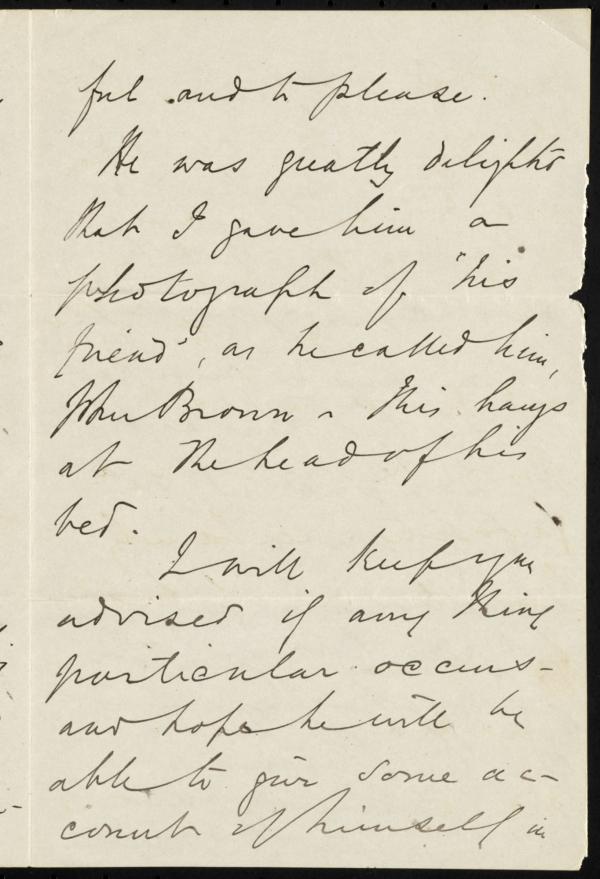 ful and to please.
He was greatly delighted
that I gave him a
photograph of "his
friend", as he called him,
John Brown - This hangs
at the head of his
bed.
I will keep you
advised if any thing
particular occurs -
and hope he will be
able to give some ac-
count of himself in